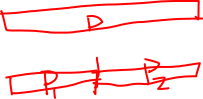 D
P1 P2